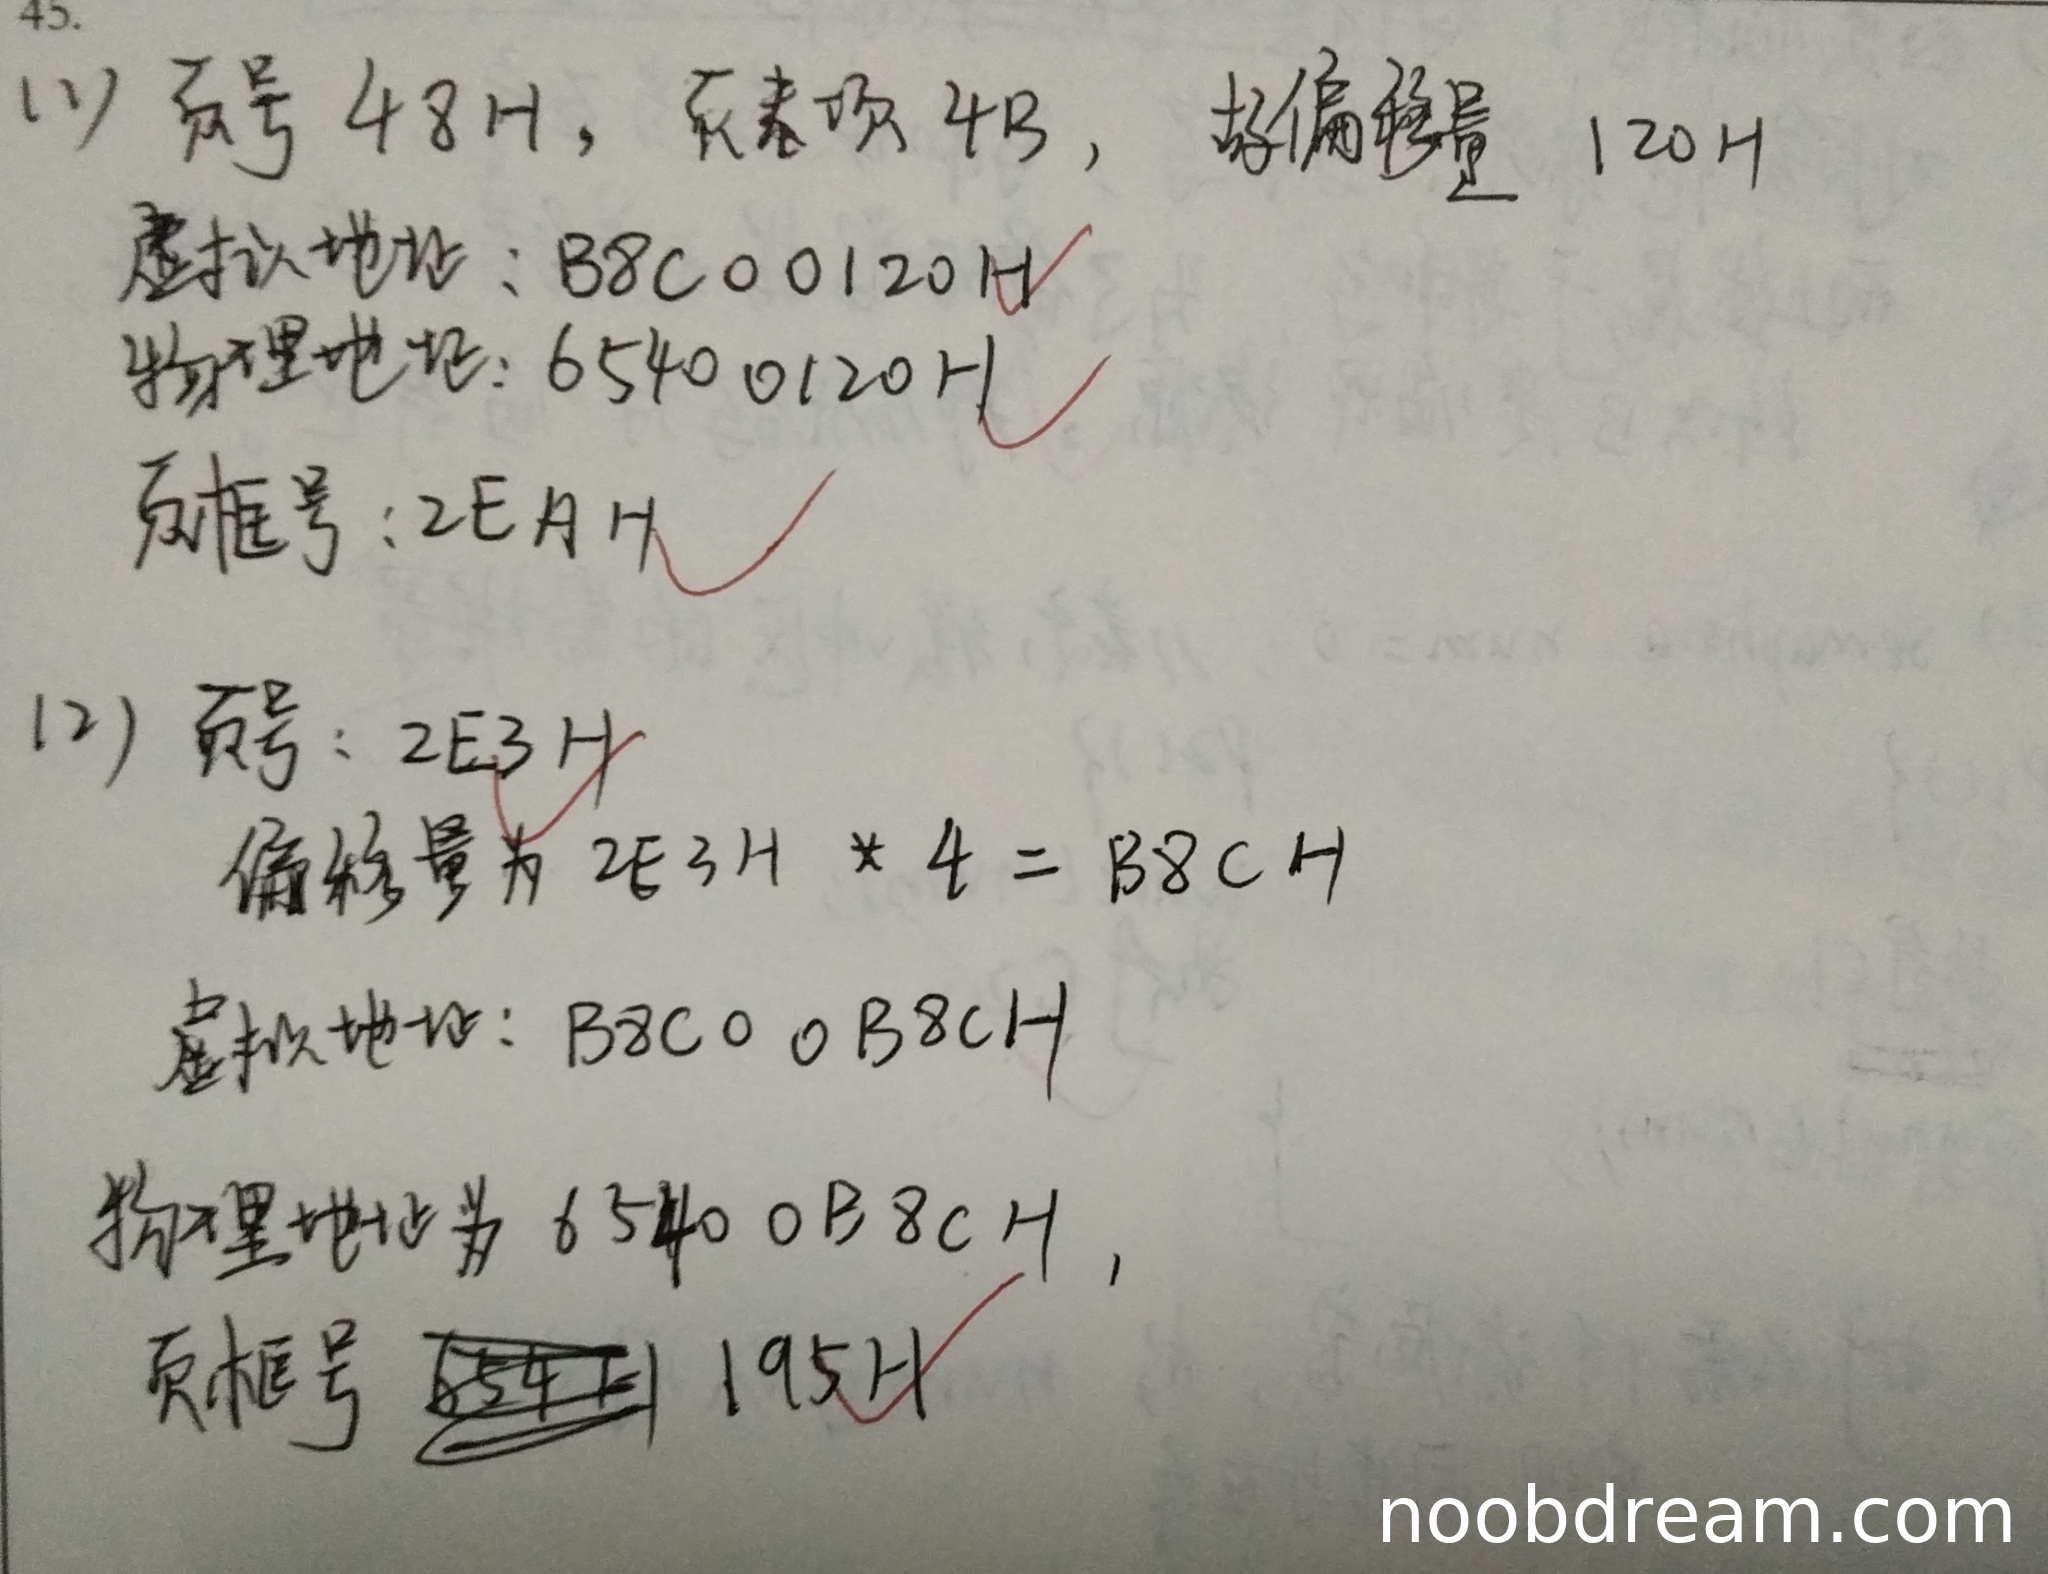 45.
(1) 页号 48H, 页表项 4B, 故偏移量 120H
虚拟地址: B8C00120H
物理地址: 65400120H
页框号: 2EAH
(2) 页号: 2E3H
偏移量为 2E3H * 4 = B8CH
虚拟地址: B8C00B8CH
物理地址为 65400B8CH,
页框号 195H
noobdream.com